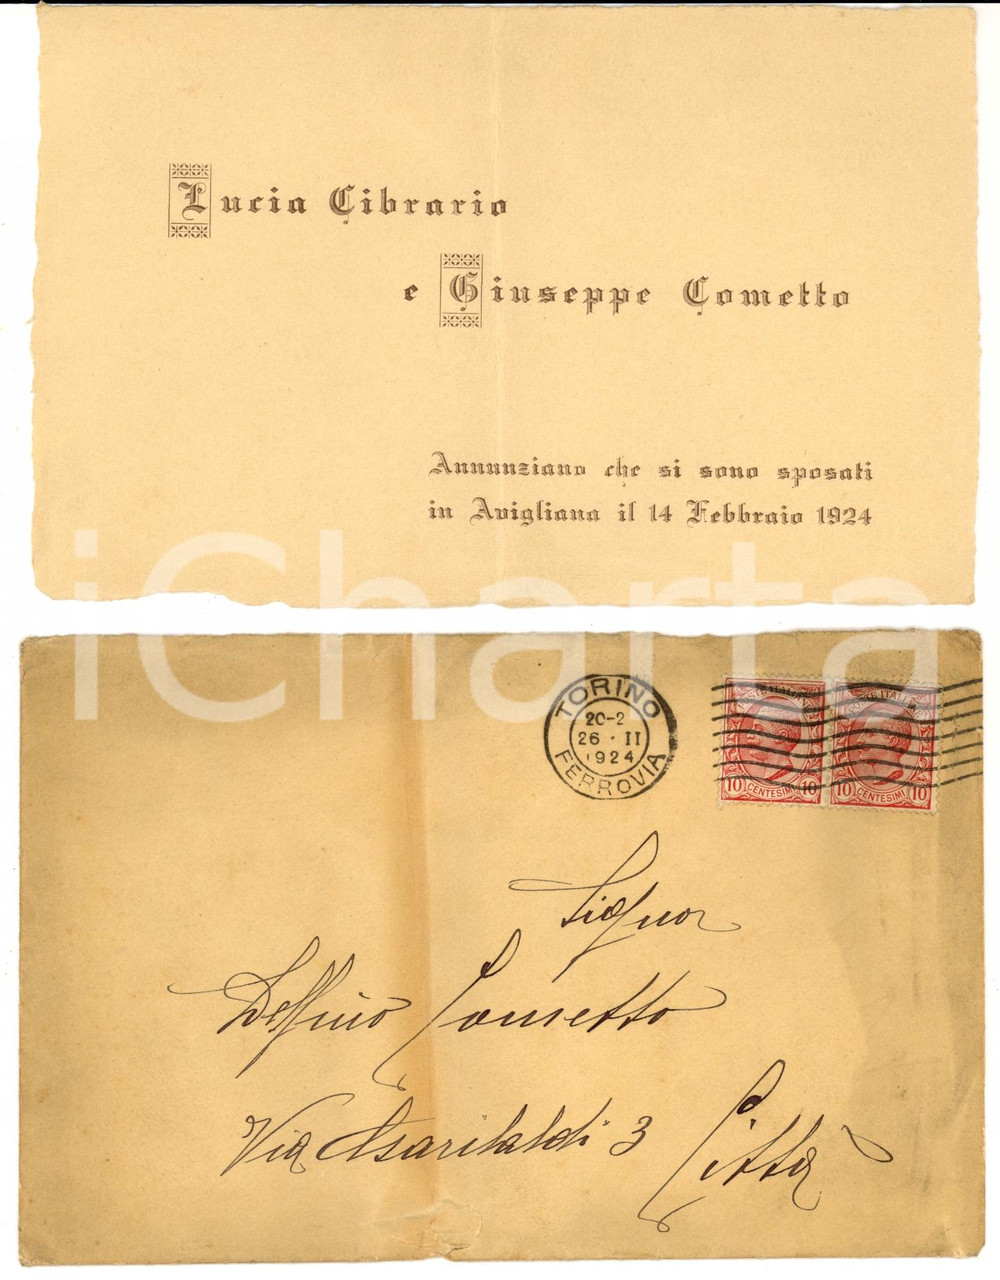 Lucia Cibrario
e Giuseppe Cometto
Annunziano che si sono sposati
in Avigliana il 14 Febbraio 1924
iCharta
TORINO
20-2
26 · II
1924
FERROVIA
POSTE ITALIANE
10 CENTESIMI 10
POSTE ITALIANE
10 CENTESIMI 10
Signor
Delfino Cometto
Via Garibaldi 3
Città